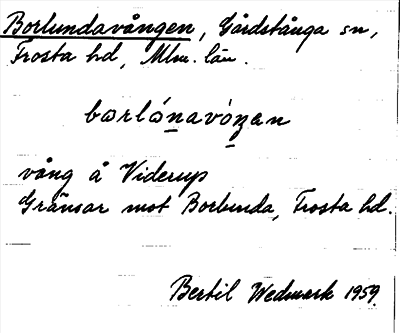 Borlundavången, Gårdstånga sn,
Frosta hd, Mlm. län.
bɷrlónavóŋen
vång å Viderup
Gränsar mot Borlunda, Frosta hd.
Bertil Wedmark 1959.